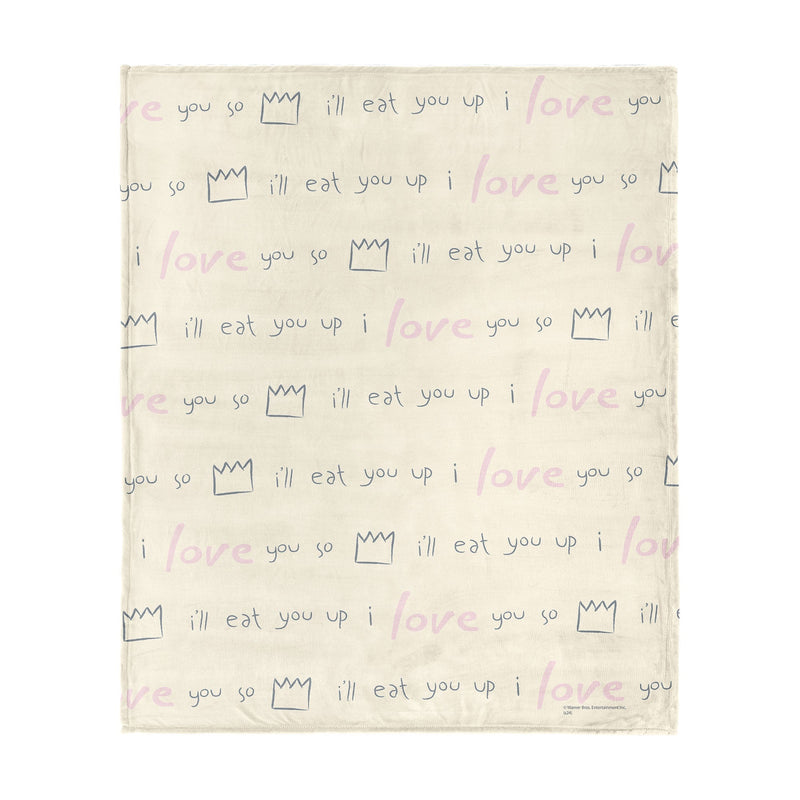 ve you so i'll eat you up i love you
you so i'll eat you up i love you so
i love you so i'll eat you up i lov
i'll eat you up i love you so i'll e
ve you so i'll eat you up i love you
you so i'll eat you up i love you so
i love you so i'll eat you up i lov
i'll eat you up i love you so i'll e
ve you so i'll eat you up i love you
© Warner Bros. Entertainment Inc.